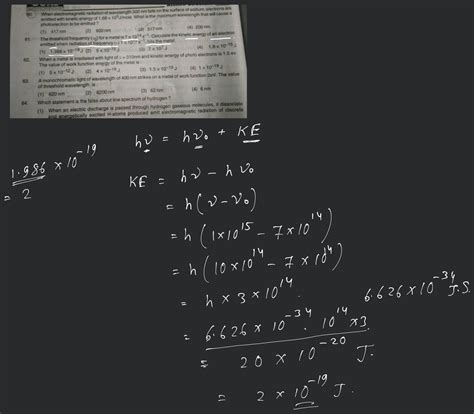 60. When electromagnetic radiation of wavelength 300 nm falls on the surface of sodium, electrons are
emitted with kinetic energy of 1.68 × 10⁵ J/mole. What is the maximum wavelength that will cause a
photoelectron to be emitted?
(1) 417 nm (2) 600 nm (3) 517 nm (4) 200 nm
61. The threshold frequency (ν₀) for a metal is 7 × 10¹⁴ s⁻¹. Calculate the kinetic energy of an electron
emitted when radiation of frequency ν = 1 × 10¹⁵ s⁻¹ hits the metal.
62. When a metal is irradiated with light of λ = 310 nm and kinetic energy of photo electrons is 1.5 ev.
The value of work function of the metal is
63. A monochromatic light of wavelength of 400 nm strikes on a metal of work function 2eV. The value
of threshold wavelength is
(1) 620 nm (2) 6200 nm (3) 62 nm (4) 6 nm
64. Which statement is the false about line spectrum of hydrogen?
(1) When an electric discharge is passed through hydrogen gaseous molecules, it dissociate
and energetically excited H-atoms produced emit electromagnetic radiation of discrete
hν = hν₀ + KE
1.986 × 10⁻¹⁹
= 2
KE = hν - hν₀
= h(ν-ν₀)
= h(1×10¹⁵ - 7×10¹⁴)
= h(10×10¹⁴ - 7×10¹⁴)
= h × 3 × 10¹⁴.
6.626×10⁻³⁴ J.S.
= 6.626×10⁻³⁴. 10¹⁴ ×3
= 20 × 10⁻²⁰ J.
= 2 × 10⁻¹⁹ J.